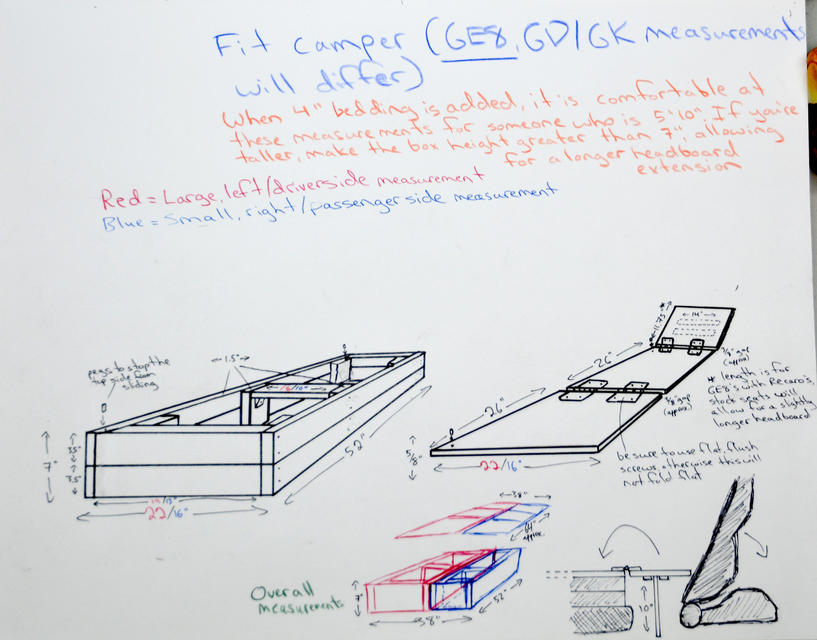 Fit camper (GE8, GD/GK measurements
will differ)
When 4" bedding is added, it is comfortable at
these measurements for someone who is 5'10". If you're
taller, make the box height greater than 7", allowing
for a longer headboard
extension
Red = Large, left/driverside measurement
Blue = Small, right/passenger side measurement
pegs to stop the
top side from
sliding
1.5"
16/10"
7"
3.5"
3.5"
52"
19/13"
22/16"
11.75" *
14"
26"
26"
3/8" gap
(approx)
3/8" gap
(approx)
* length is for
GE8's with Recaro's,
stock seats will
allow for a slightly
longer headboard
5/8"
22/16"
be sure to use flat, flush
screws, otherwise this will
not fold flat
38"
64"
approx
Overall
measurements
7"
52"
38"
10"